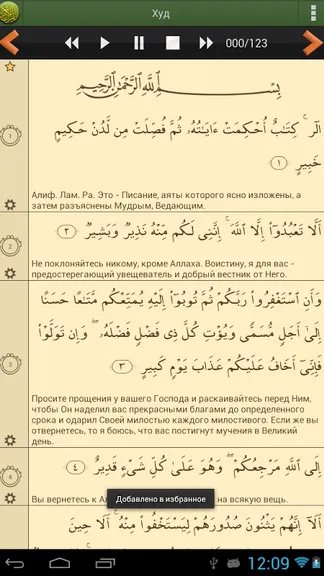 Худ
000/123
بِسْمِ ٱللَّهِ ٱلرَّحْمَٰنِ ٱلرَّحِيمِ
1
الٓر ۚ كِتَـٰبٌ أُحْكِمَتْ ءَايَـٰتُهُۥ ثُمَّ فُصِّلَتْ مِن لَّدُنْ حَكِيمٍ
خَبِيرٍ
١
Алиф. Лам. Ра. Это - Писание, аяты которого ясно изложены, а
затем разъяснены Мудрым, Ведающим.
2
أَلَّا تَعْبُدُوٓا۟ إِلَّا ٱللَّهَ ۚ إِنَّنِى لَكُم مِّنْهُ نَذِيرٌ وَبَشِيرٌ ٢
Не поклоняйтесь никому, кроме Аллаха. Воистину, я для вас -
предостерегающий увещеватель и добрый вестник от Него.
3
وَأَنِ ٱسْتَغْفِرُوا۟ رَبَّكُمْ ثُمَّ تُوبُوٓا۟ إِلَيْهِ يُمَتِّعْكُم مَّتَـٰعًا حَسَنًا
إِلَىٰٓ أَجَلٍ مُّسَمًّى وَيُؤْتِ كُلَّ ذِى فَضْلٍ فَضْلَهُۥ ۖ وَإِن تَوَلَّوْا۟
فَإِنِّىٓ أَخَافُ عَلَيْكُمْ عَذَابَ يَوْمٍ كَبِيرٍ ٣
Просите прощения у вашего Господа и раскаивайтесь перед Ним,
чтобы Он наделил вас прекрасными благами до определенного
срока и одарил Своей милостью каждого милостивого. Если же вы
отвернетесь, то я боюсь, что вас постигнут мучения в Великий
день.
4
إِلَى ٱللَّهِ مَرْجِعُكُمْ ۖ وَهُوَ عَلَىٰ كُلِّ شَىْءٍ قَدِيرٌ ٤
Вы вернетесь к на всякую вещь.
Добавлено в избранное
أَلَآ إِنَّهُمْ يَثْنُونَ صُدُورَهُمْ لِيَسْتَخْفُوا۟ مِنْهُ ۚ أَلَا حِينَ
12:09